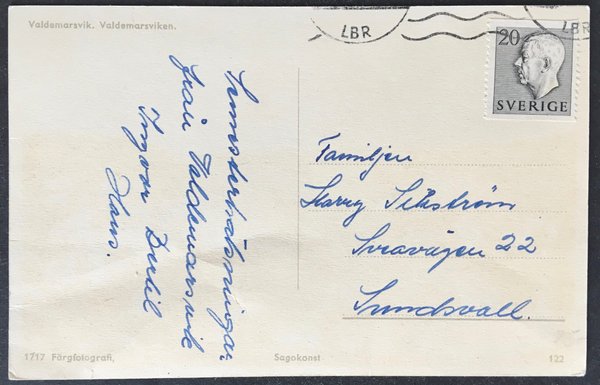 Valdemarsvik. Valdemarsviken.
LBR
LBR
20
SVERIGE
Semesterhälsningar
från Valdemarsvik
Ingvar Bertil
Hans.
Familjen
Harry Sillström
Sveavägen 22
Sundsvall.
1717 Färgfotografi,
Sagokonst
122